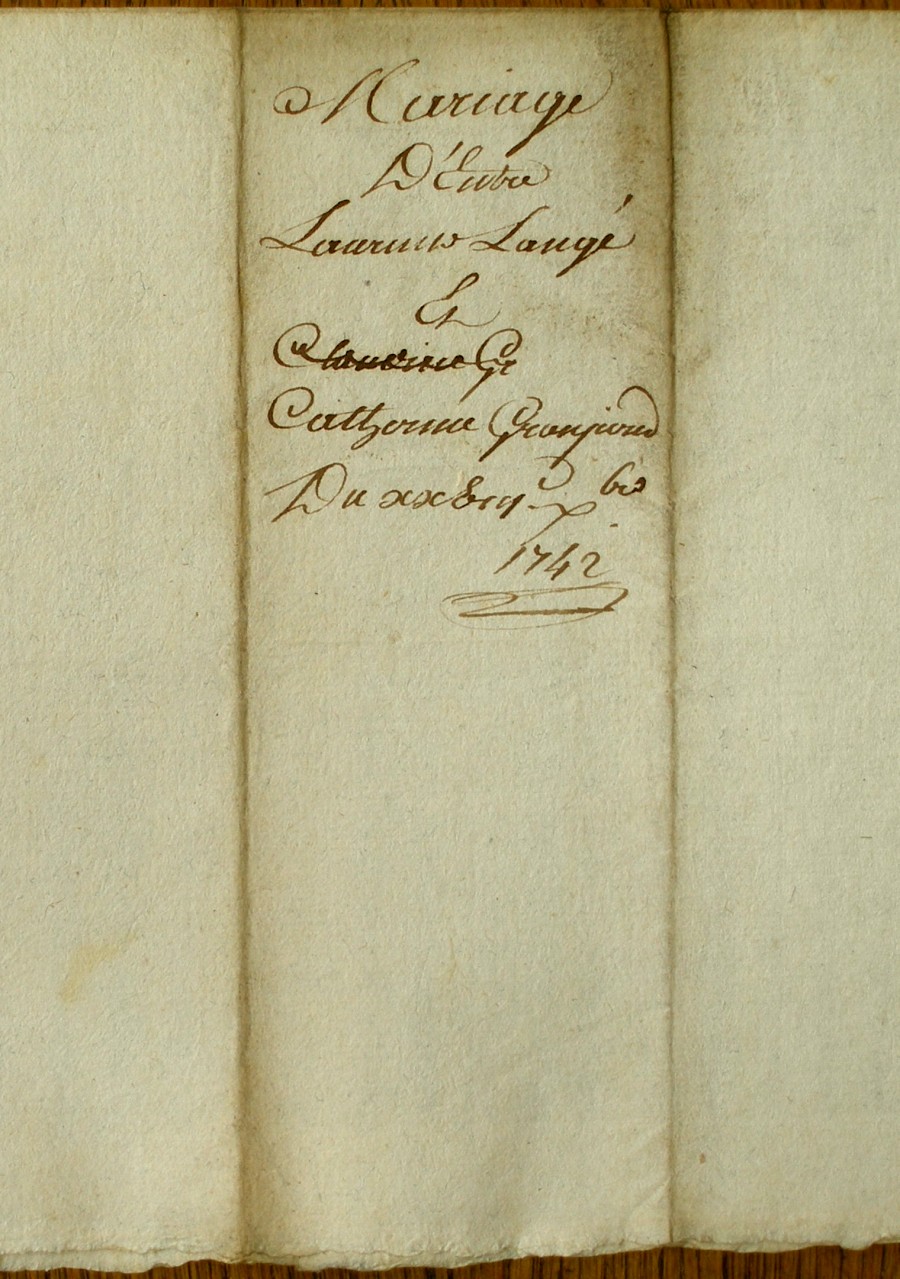 Mariage
D'Entre
Laurens Langé
Et
Claudine Gr
Catherine Granjend
Du xx
1742